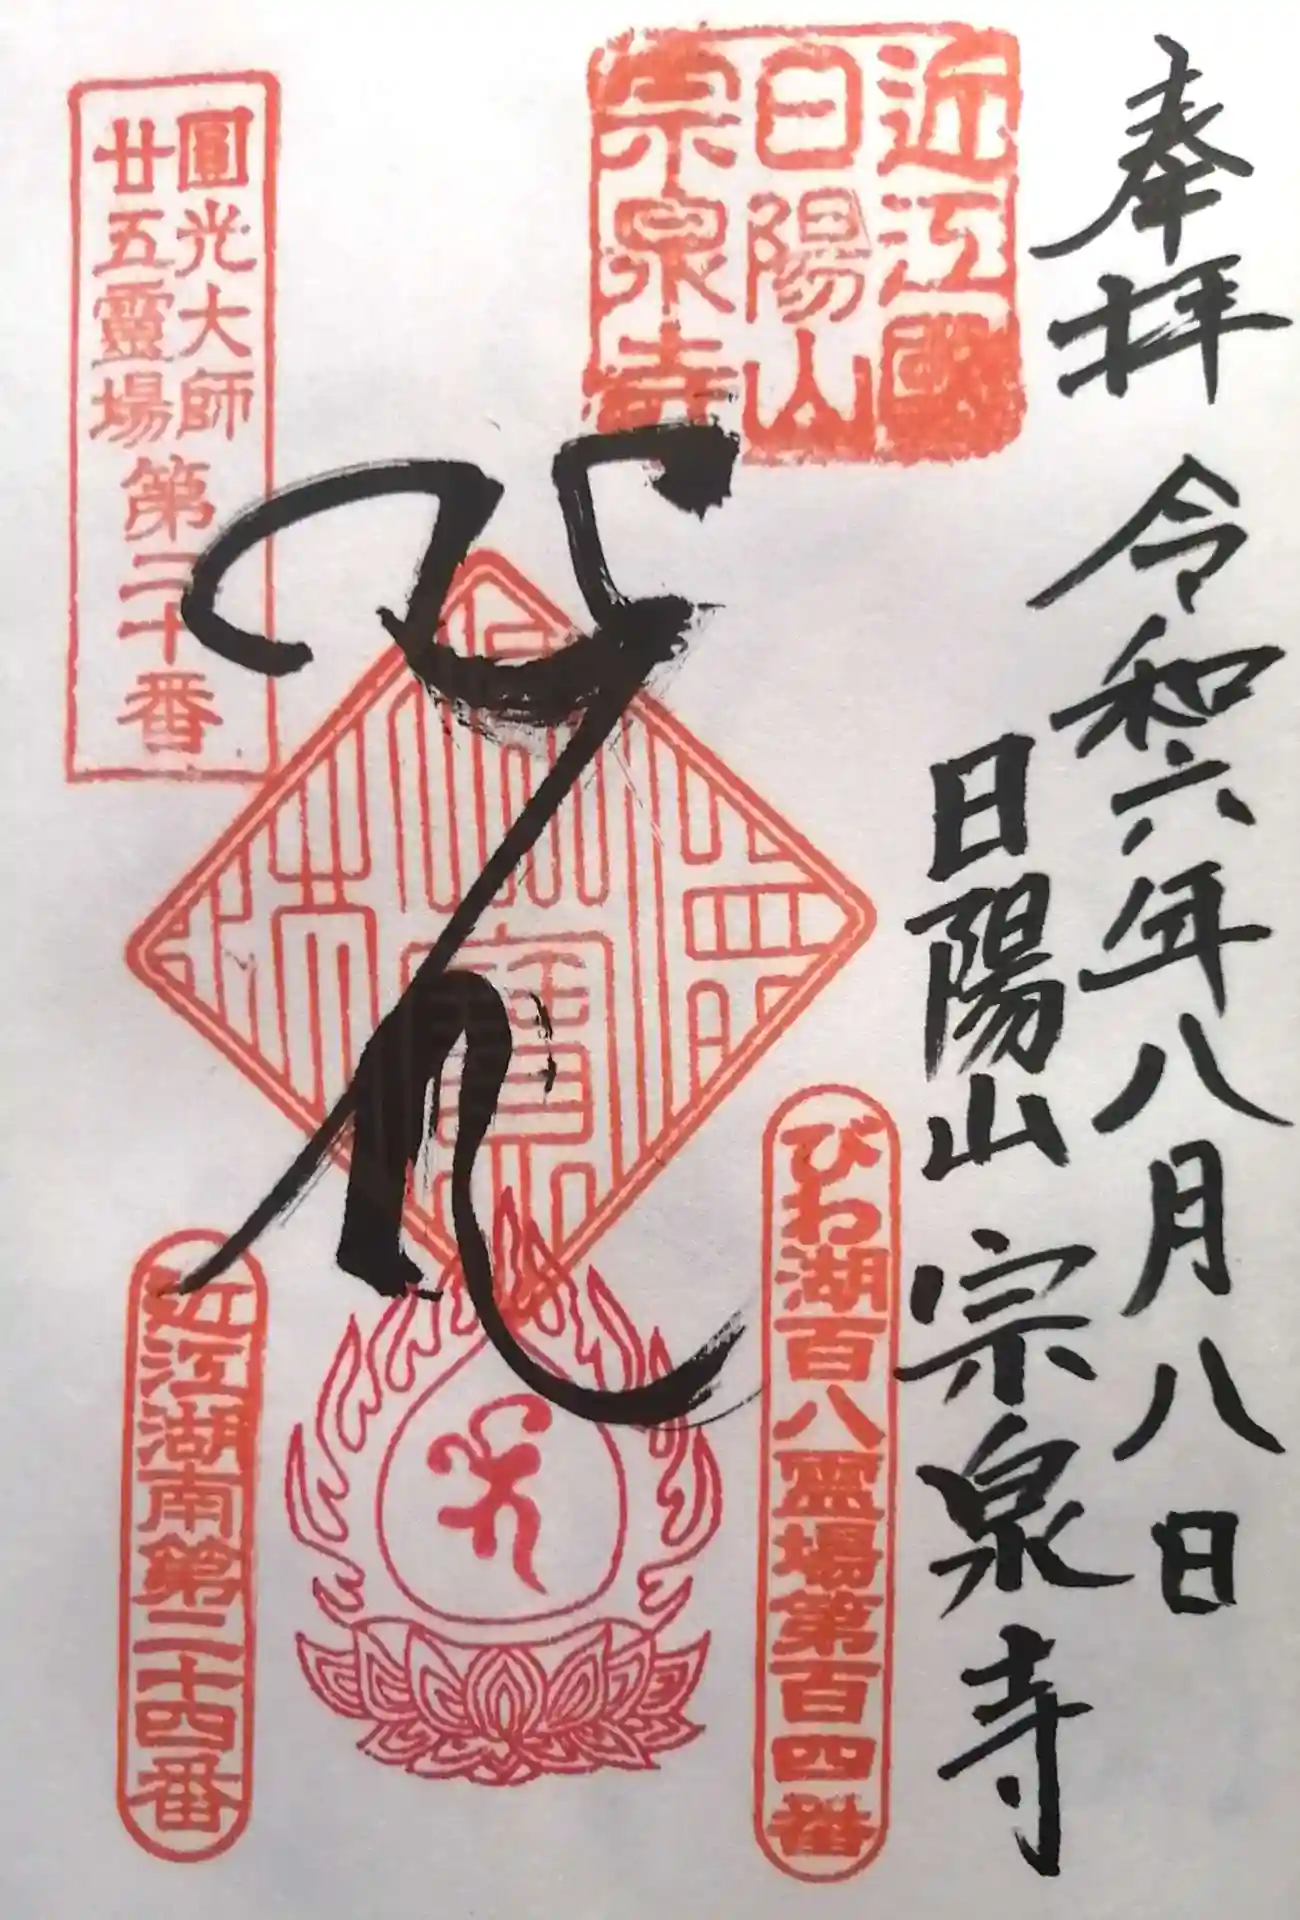 奉拝 令和六年八月八日
日陽山 宗泉寺
近江國
日陽山
宗泉寺
圓光大師
廿五靈場
第二十番
びわ湖百八霊場第百四番
近江湖南第二十四番